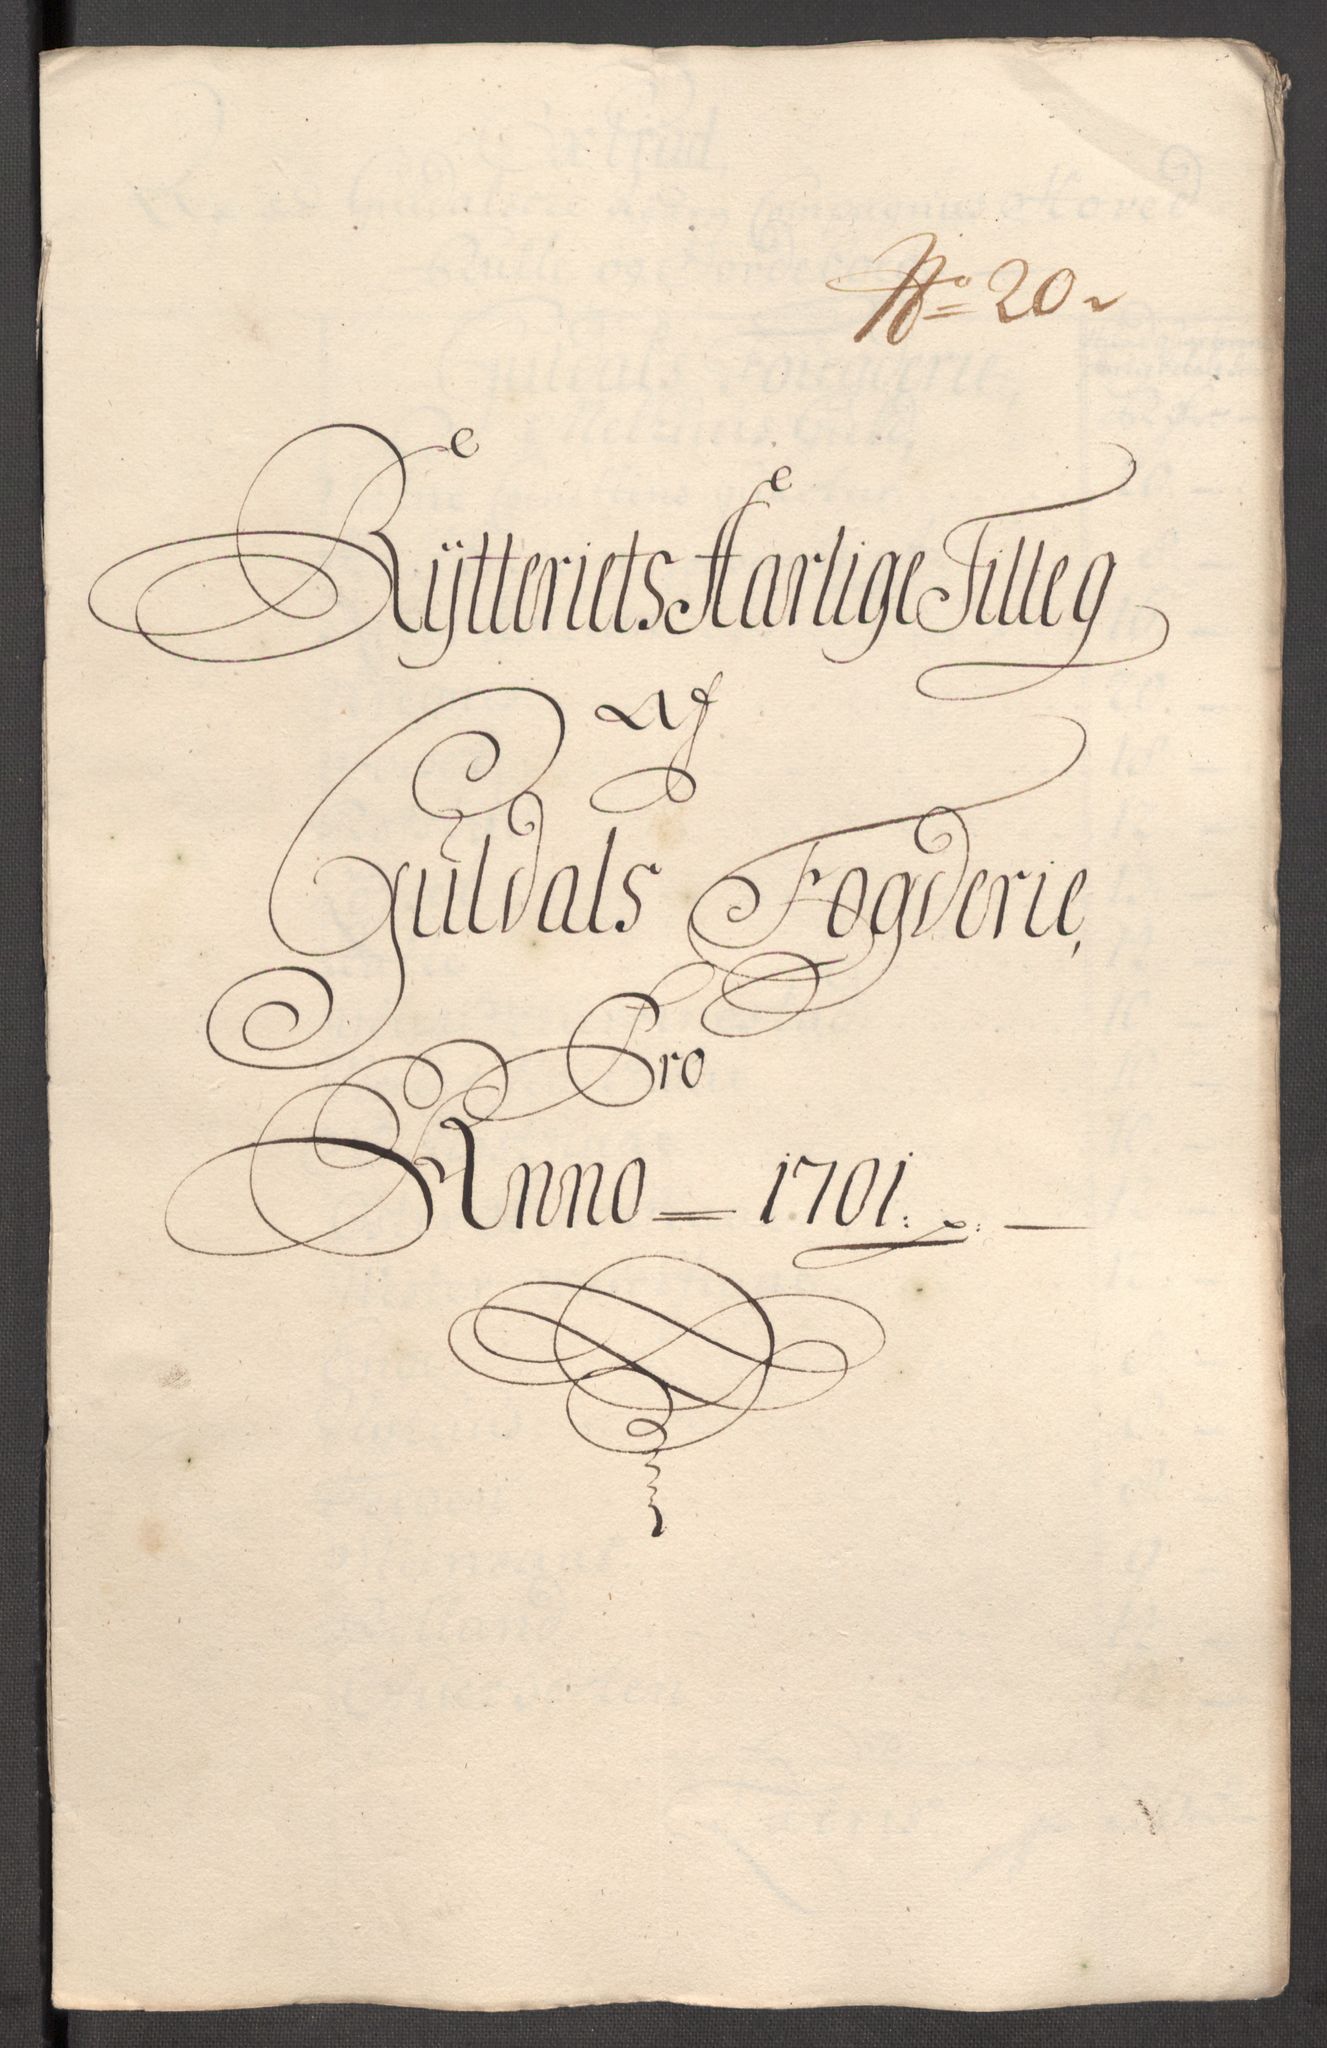 No 20
Rÿtteriets Aarlige Tilleg
Af
Guldals Fogderie,
Pro
Anno 1701.